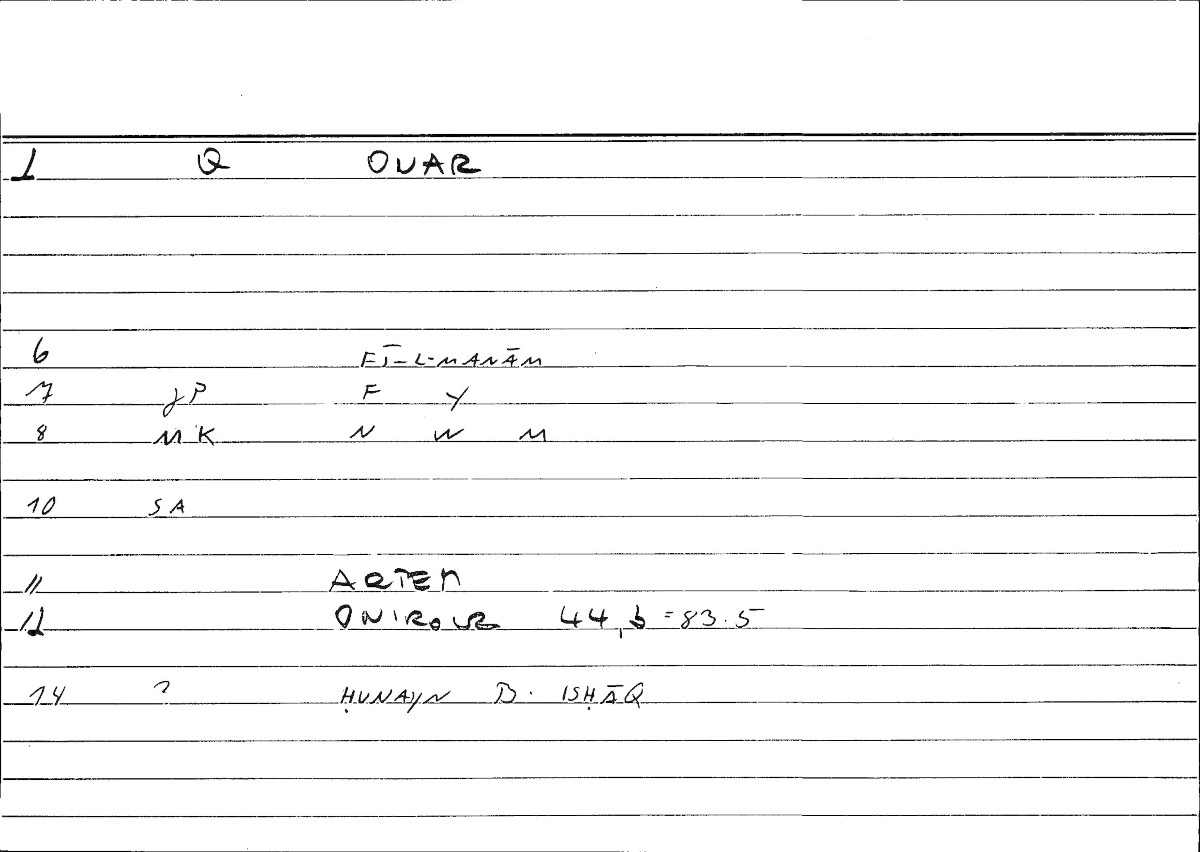 1 Q ONAR
6 FĪ-L-MANĀM
7 JP F Y
8 MK N W M
10 SA
11 ARTEM
12 ONIROCR 44,5=83.5
14 ? ḤUNAYN B. ISḤĀQ